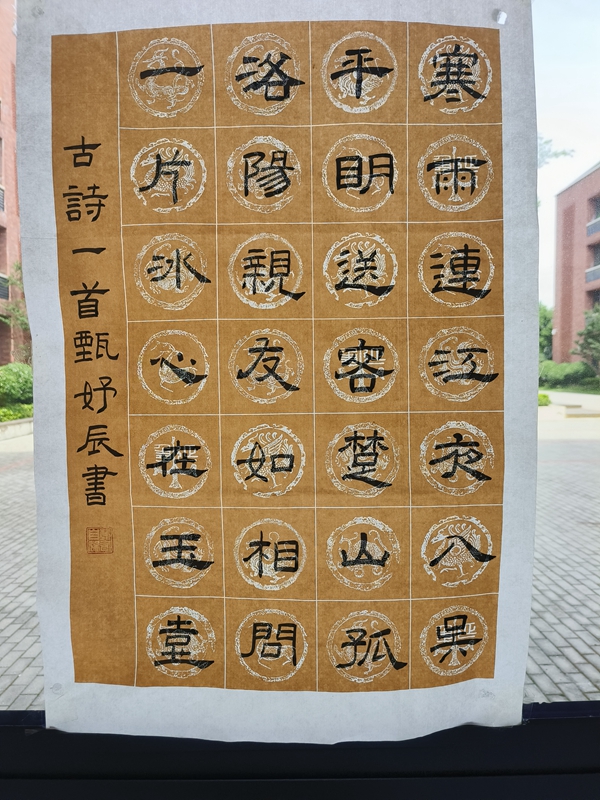 寒雨連江夜入吳
平明送客楚山孤
洛陽親友如相問
一片冰心在玉壺
古詩一首甄妤辰書